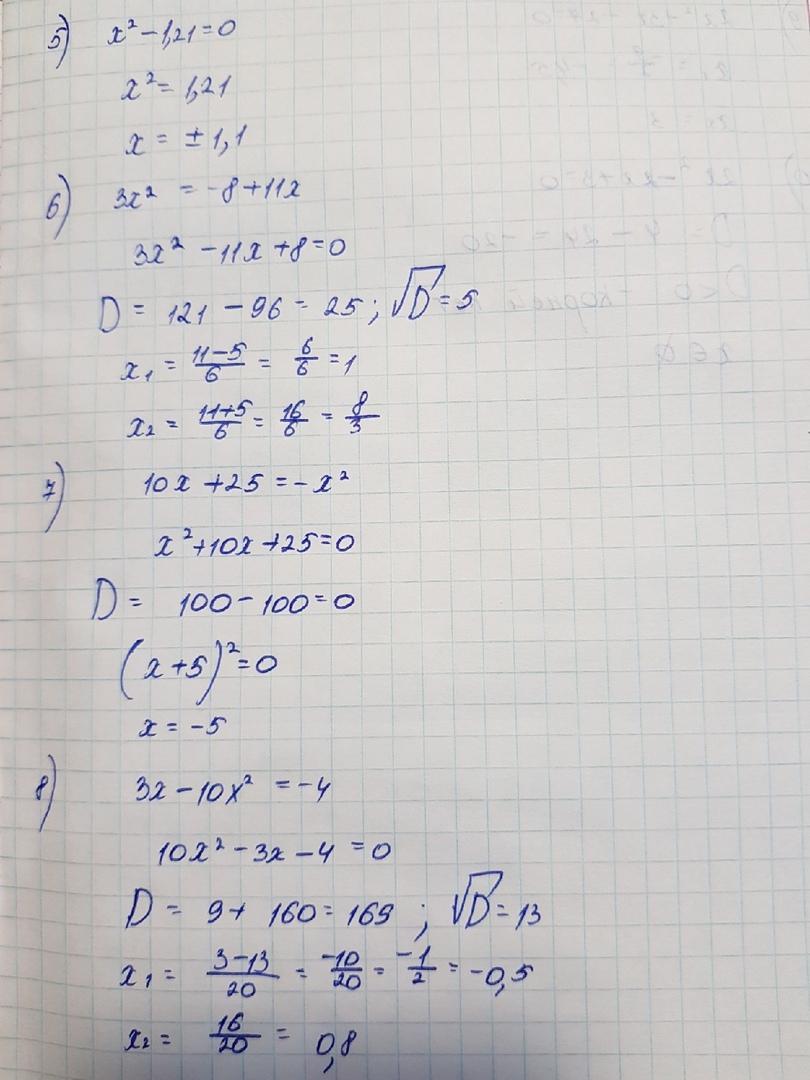 5) x² – 1,21 = 0
x² = 1,21
x = ± 1,1
6) 3x² = -8 + 11x
3x² – 11x + 8 = 0
D = 121 – 96 = 25 ; √D = 5
x₁ = (11–5)/6 = 6/6 = 1
x₂ = (11+5)/6 = 16/6 = 8/3
7) 10x + 25 = – x²
x² + 10x + 25 = 0
D = 100 – 100 = 0
(x + 5)² = 0
x = – 5
8) 3x – 10x² = – 4
10x² – 3x – 4 = 0
D = 9 + 160 = 169 ; √D = 13
x₁ = (3–13)/20 = -10/20 = -1/2 = -0,5
x₂ = 16/20 = 0,8